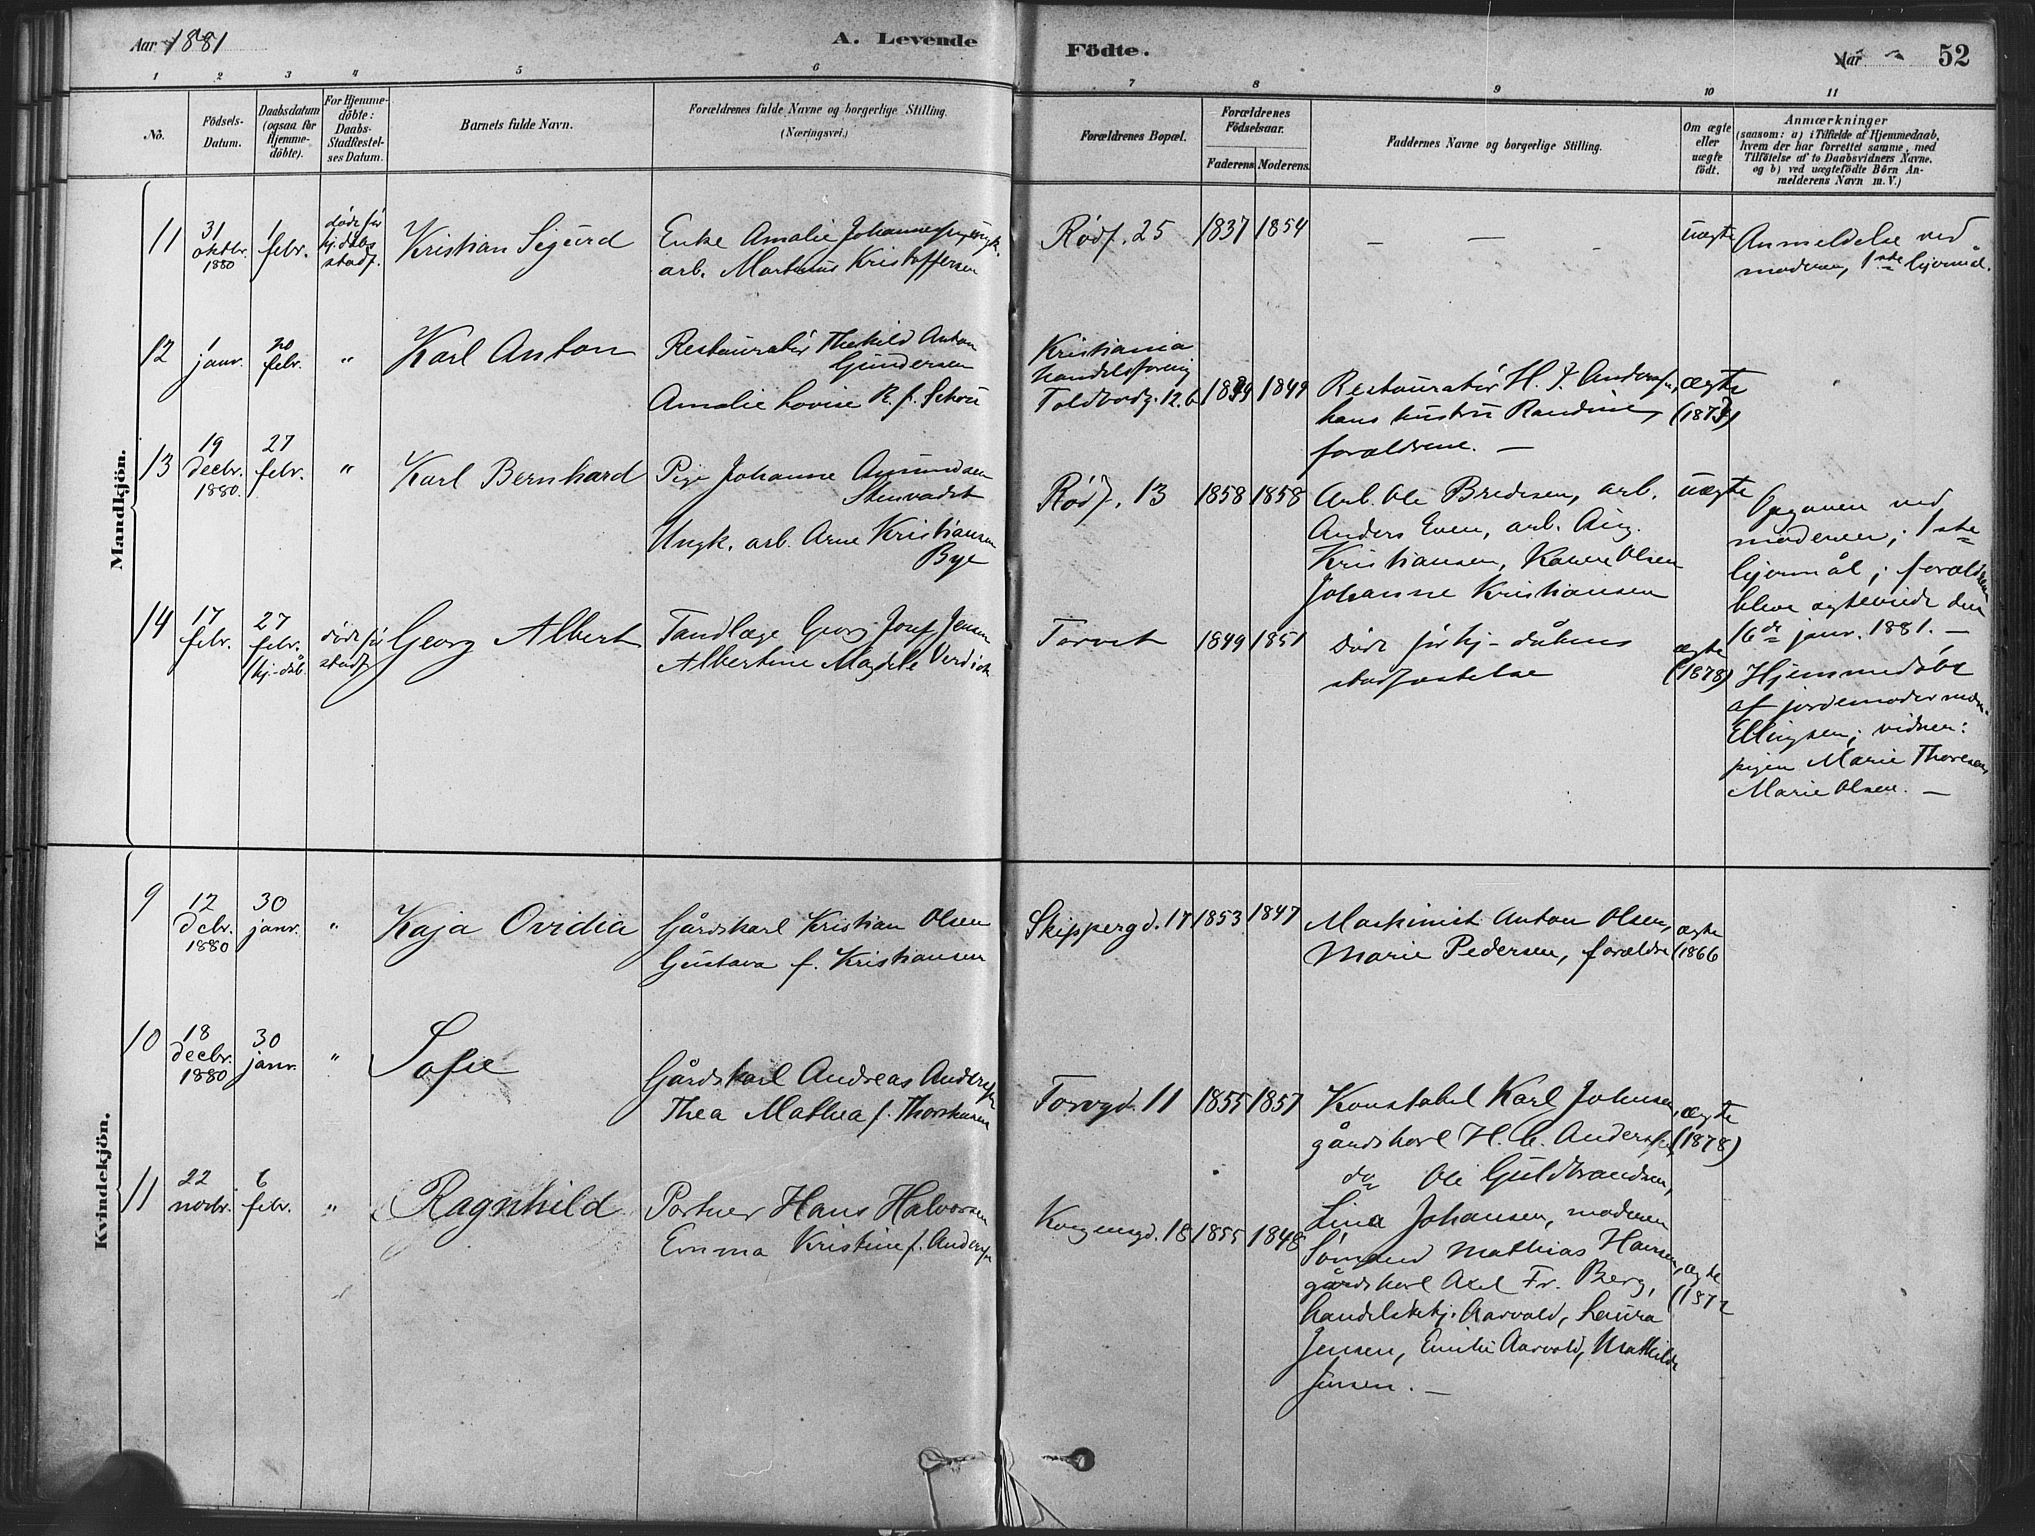 Aar 1881
A. Levende
Födte.
Aar
52
1 2 3 4 5 6 7 8 9 10 11
No.
Födsels-
Datum.
Daabsdatum
(ogsaa for
Hjemme-
döbte).
For Hjemme-
döbte:
Daabs-
Stadfæstel-
ses Datum.
Barnets fulde Navn.
Forældrenes fulde Navne og borgerlige Stilling.
(Næringsvei.)
Forældrenes Bopæl.
Forældrenes
Födselsaar.
Faderens Moderens
Faddernes Navne og borgerlige Stilling.
Om ægte
eller
uægte
födt.
Anmærkninger
(saasom: a) i Tilfælde af Hjemmedaab,
hvem der har forrettet samme, med
Tilföielse af to Daabsvidners Navne.
og b) ved uægtefödte Börn An-
melderens Navn m. V.)
Mandkjön.
11
31
oktbr.
1880
1
febr.
døde før
hj. dåbs
stadf.
Kristian Sigurd
Enke Amalie
arb. Martinus Kristoffersen
Rødf. 25
1837 1854
– – –
uægte
Anmeldelse ved
moderen, 1ste
12
1
janr.
20
febr.
"
Karl Anton
Restauratør Thorkild Anton
Gundersen
Amalie Lovise R. f. Schou
Kristiania
handelsforening
Toldbodg. 12.b
1849
Restauratør H. J.
hans hustru Randine,
forældrene. –
ægte
13
19
decbr.
1880.
27
febr.
"
Karl Bernhard
Pige Johanne Amundsen
Stenvadet
Ungk. arb. Arne Kristiansen
Bye
Rødf. 13
1858 1858
Arb. Ole Bredesen, arb.
Anders Even, arb. Aug.
Kristiansen, Karen Olsen
Johanne Kristiansen
uægte
Opgaven ved
moderen, 1ste
lejermål; forældrene
bleve ægteviede den
16de janr. 1881. –
14
17
febr.
27
febr.
hj.-dåb
døde før
stadf
Georg Albert
Tandlæge Georg Josef Jensen
Albertine Magdele
Torvet
1849 1851
Døde før hj-dåbens
stadfæstelse
ægte
(1878)
Hjemmedøbt
af jordemoder
Ellingsen; vidner:
pigen Marie Thoresen,
Marie Olsen. –
Kvindekjön.
9
12
debr.
1880
30
janr.
"
Kaja Ovidia
Gårdskarl Kristian Olsen
Gustava f. Kristiansen
Skippergd. 17
1853 1847
Maskinist Anton Olsen,
Marie Pedersen, forældre
ægte
(1866
10
18
decbr.
1880
30
janr.
"
Sofie
Gårdskarl Andreas Andersen
Thea Mathea f.
Torvgd. 11
1855 1857
Konstabel Karl Johnsen,
gårdskarl H. C. Andersen,
do Ole Guldbrandsen,
Lina Johansen, moderen
ægte
(1878)
11
22
novbr.
6
febr.
"
Ragnhild
Portner Hans Halvorsen
Emma Kristine f. Andersen
Kongensgd. 18
1855 1848
Sömand Mathias Hansen,
gårdskarl Axel Fr. Berg,
handelsbetj. Aarvold, Laura
Jensen, Emilie Aarvold, Mathilde
Jensen. –
ægte
(1872